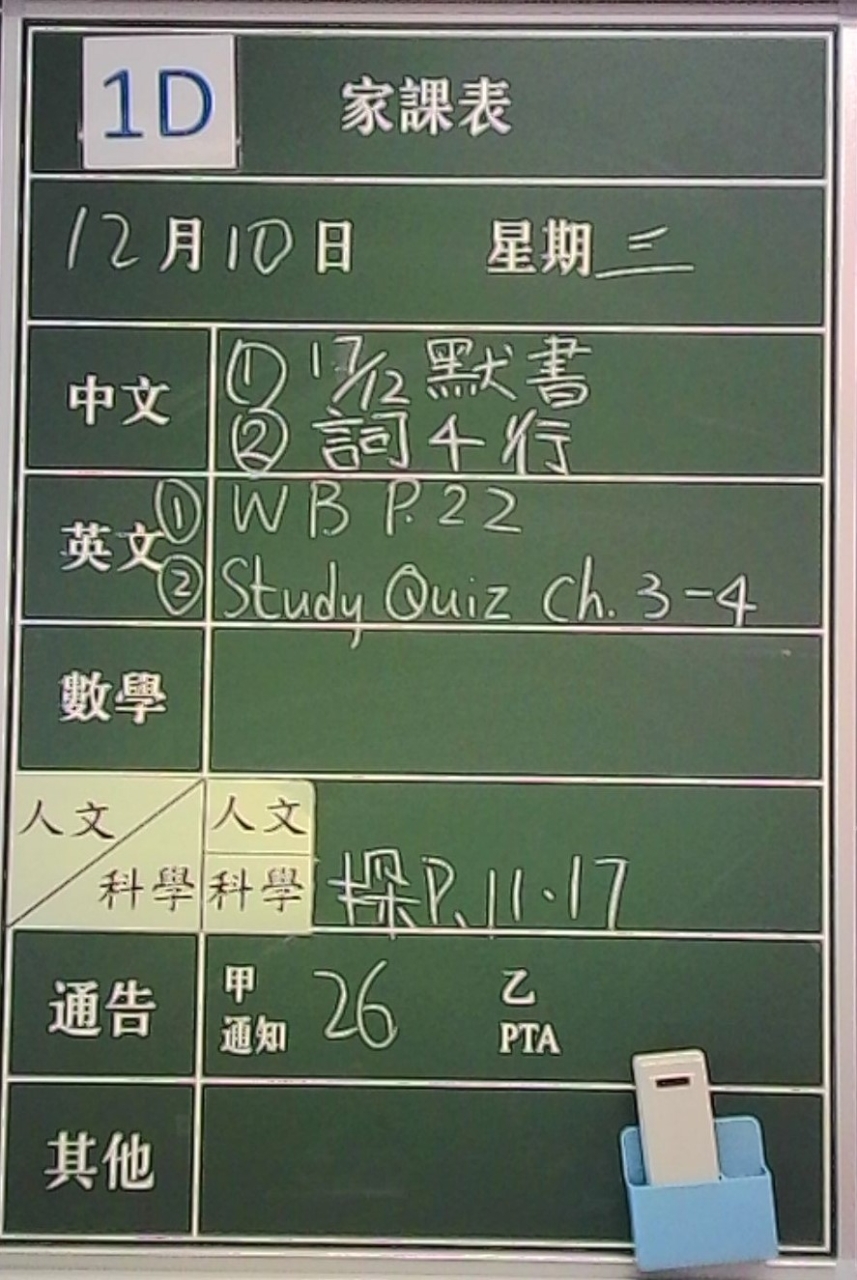 1D 家課表
12月10日 星期三
中文 ① 17/12 默書
② 詞4行
英文 ① WB P.22
② Study Quiz Ch. 3-4
數學
人文 人文
科學 科學 探P.11.17
通告 甲 通知 26 乙 PTA
其他